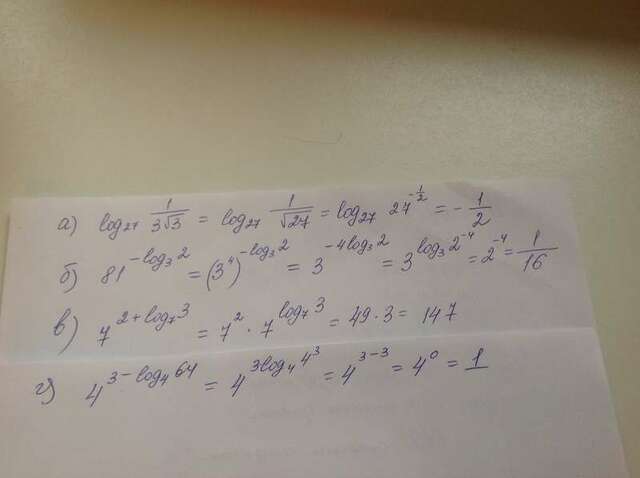 а) log₂₇ 1/(3√3) = log₂₇ 1/√27 = log₂₇ 27^(-1/2) = -1/2
б) 81^(-log₃2) = (3⁴)^(-log₃2) = 3^(-4log₃2) = 3^(log₃2⁻⁴) = 2⁻⁴ = 1/16
в) 7^(2+log₇3) = 7² · 7^(log₇3) = 49 · 3 = 147
г) 4^(3-log₄64) = 4^(3log₄4³) = 4^(3-3) = 4⁰ = 1